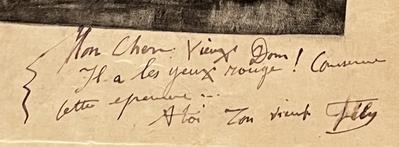 Mon Cher Vieux Dom!
Il a les yeux rouge! Conserve
cette epreuve...
A toi Ton vieux